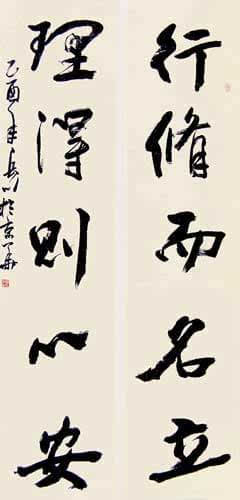 行脩而名立
理得則心安
乙酉年長川於京華